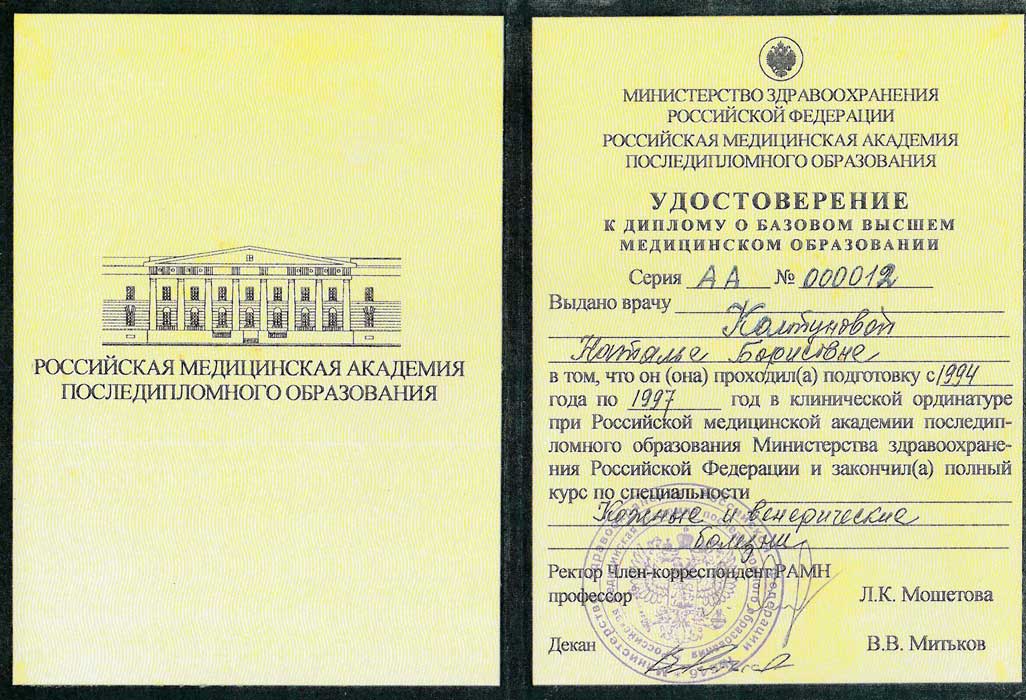 РОССИЙСКАЯ МЕДИЦИНСКАЯ АКАДЕМИЯ
ПОСЛЕДИПЛОМНОГО ОБРАЗОВАНИЯ
МИНИСТЕРСТВО ЗДРАВООХРАНЕНИЯ
РОССИЙСКОЙ ФЕДЕРАЦИИ
РОССИЙСКАЯ МЕДИЦИНСКАЯ АКАДЕМИЯ
ПОСЛЕДИПЛОМНОГО ОБРАЗОВАНИЯ
УДОСТОВЕРЕНИЕ
К ДИПЛОМУ О БАЗОВОМ ВЫСШЕМ
МЕДИЦИНСКОМ ОБРАЗОВАНИИ
Серия АА № 000012
Выдано врачу
Колтуновой
Наталье Борисовне
в том, что он (она) проходил(а) подготовку с 1994
года по 1997 год в клинической ординатуре
при Российской медицинской академии последип-
ломного образования Министерства здравоохране-
ния Российской Федерации и закончил(а) полный
курс по специальности
Кожные и венерические
болезни
Ректор Член-корреспондент РАМН
профессор Л.К. Мошетова
Декан В.В. Митьков